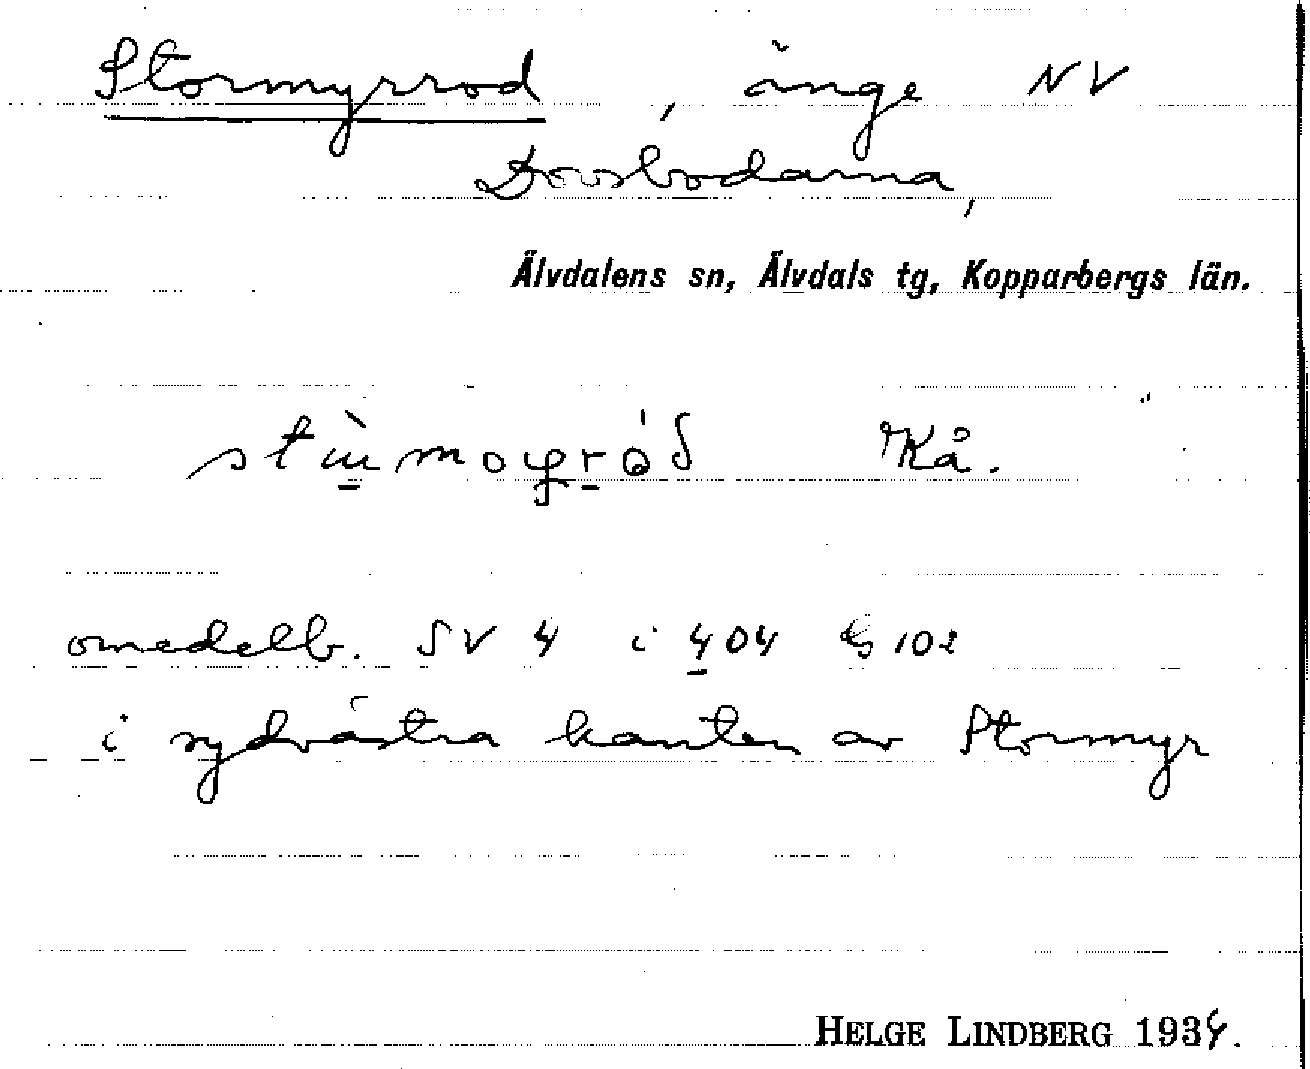 Stormyrrod, änge NV
Dovsbodarna,
Älvdalens sn, Älvdals tg, Kopparbergs län.
Kå.
omedelb. SV 4 i 404 § 102
i sydvästra kanten av Stormyr
HELGE LINDBERG 1934.